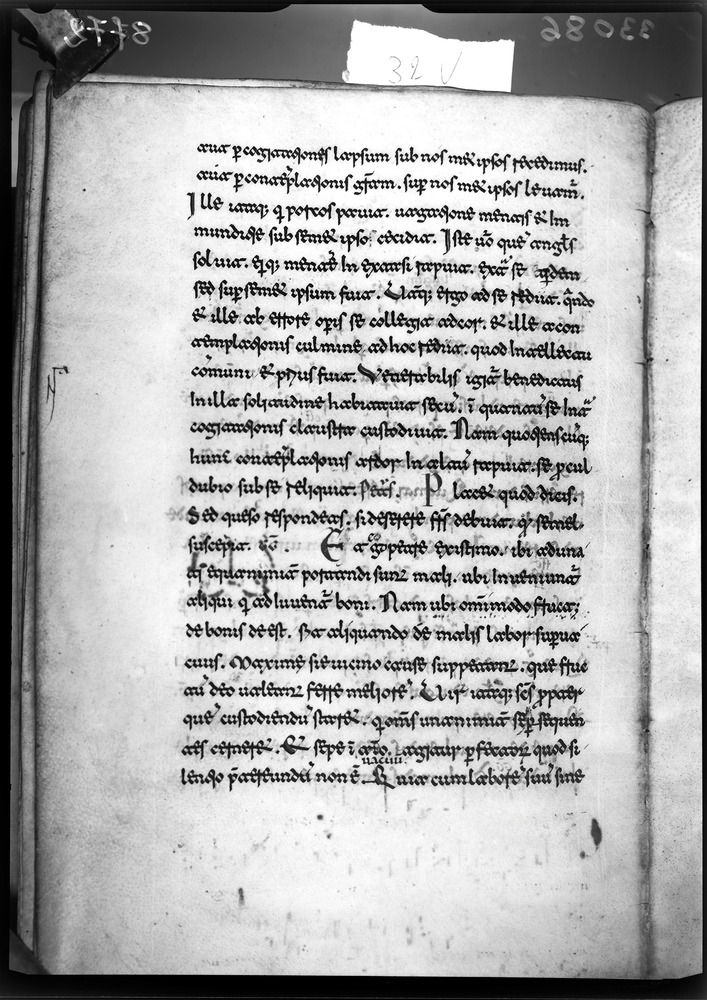 33086
8772
32 v
aut p cogitationis lapsum sub nos meti ipsos recedimus.
aut p contēplationis gr̄am. sup nos met ipsos leuam̄.
Ille itaq; q porcos pauit. uagatione mentis et In
munditie sub semet ipso cecidit. Iste uō quē angl̄s
soluit. ejq; mentē In extasi rapuit. extā se qdem
sed sup semet ipsum fuit. Ut̄q; ergo ad se rediit. qn̄do
et ille ab errore opis se collegit ad cor. et ille a con
templationis culmine ad hoc rediit. quod Intellectu
cōmuni et prius fuit. Venerabilis igit̄ benedictus
In illa solitudine habitauit secū. ī quantū se Int̄
cogitationis claustra custodiuit. Nam quotienscūq;
hunc contēplationis ardor In altū rapuit. se pcul
dubio sub se reliquit. Petrs. Placet quod dicis.
Sed queso respondeas. si deserere frs debuit. qs semel
suscepit. Gg. Et ego petre existimo. ibi aduna
ti equanimit̄ portandi sunt mali. ubi Inueniunt̄
aliqui q adiuuent̄ boni. Nam ubi omnimodo fructus
de bonis deest. Fit aliquando de malis labor supuac
cuus. Maxime si e uicino cause suppetant. que fruc
tū deo ualeant ferre meliorē. Uir itaq; scs ppter
quē custodiendū staret. q om̄s unanimit̄ se psequen
tes cerneret. Et sepe ī aīo. agitur pfector quod si
lentio p̄tereundū non ē. Quia cum laborē suū sine
uacuu.